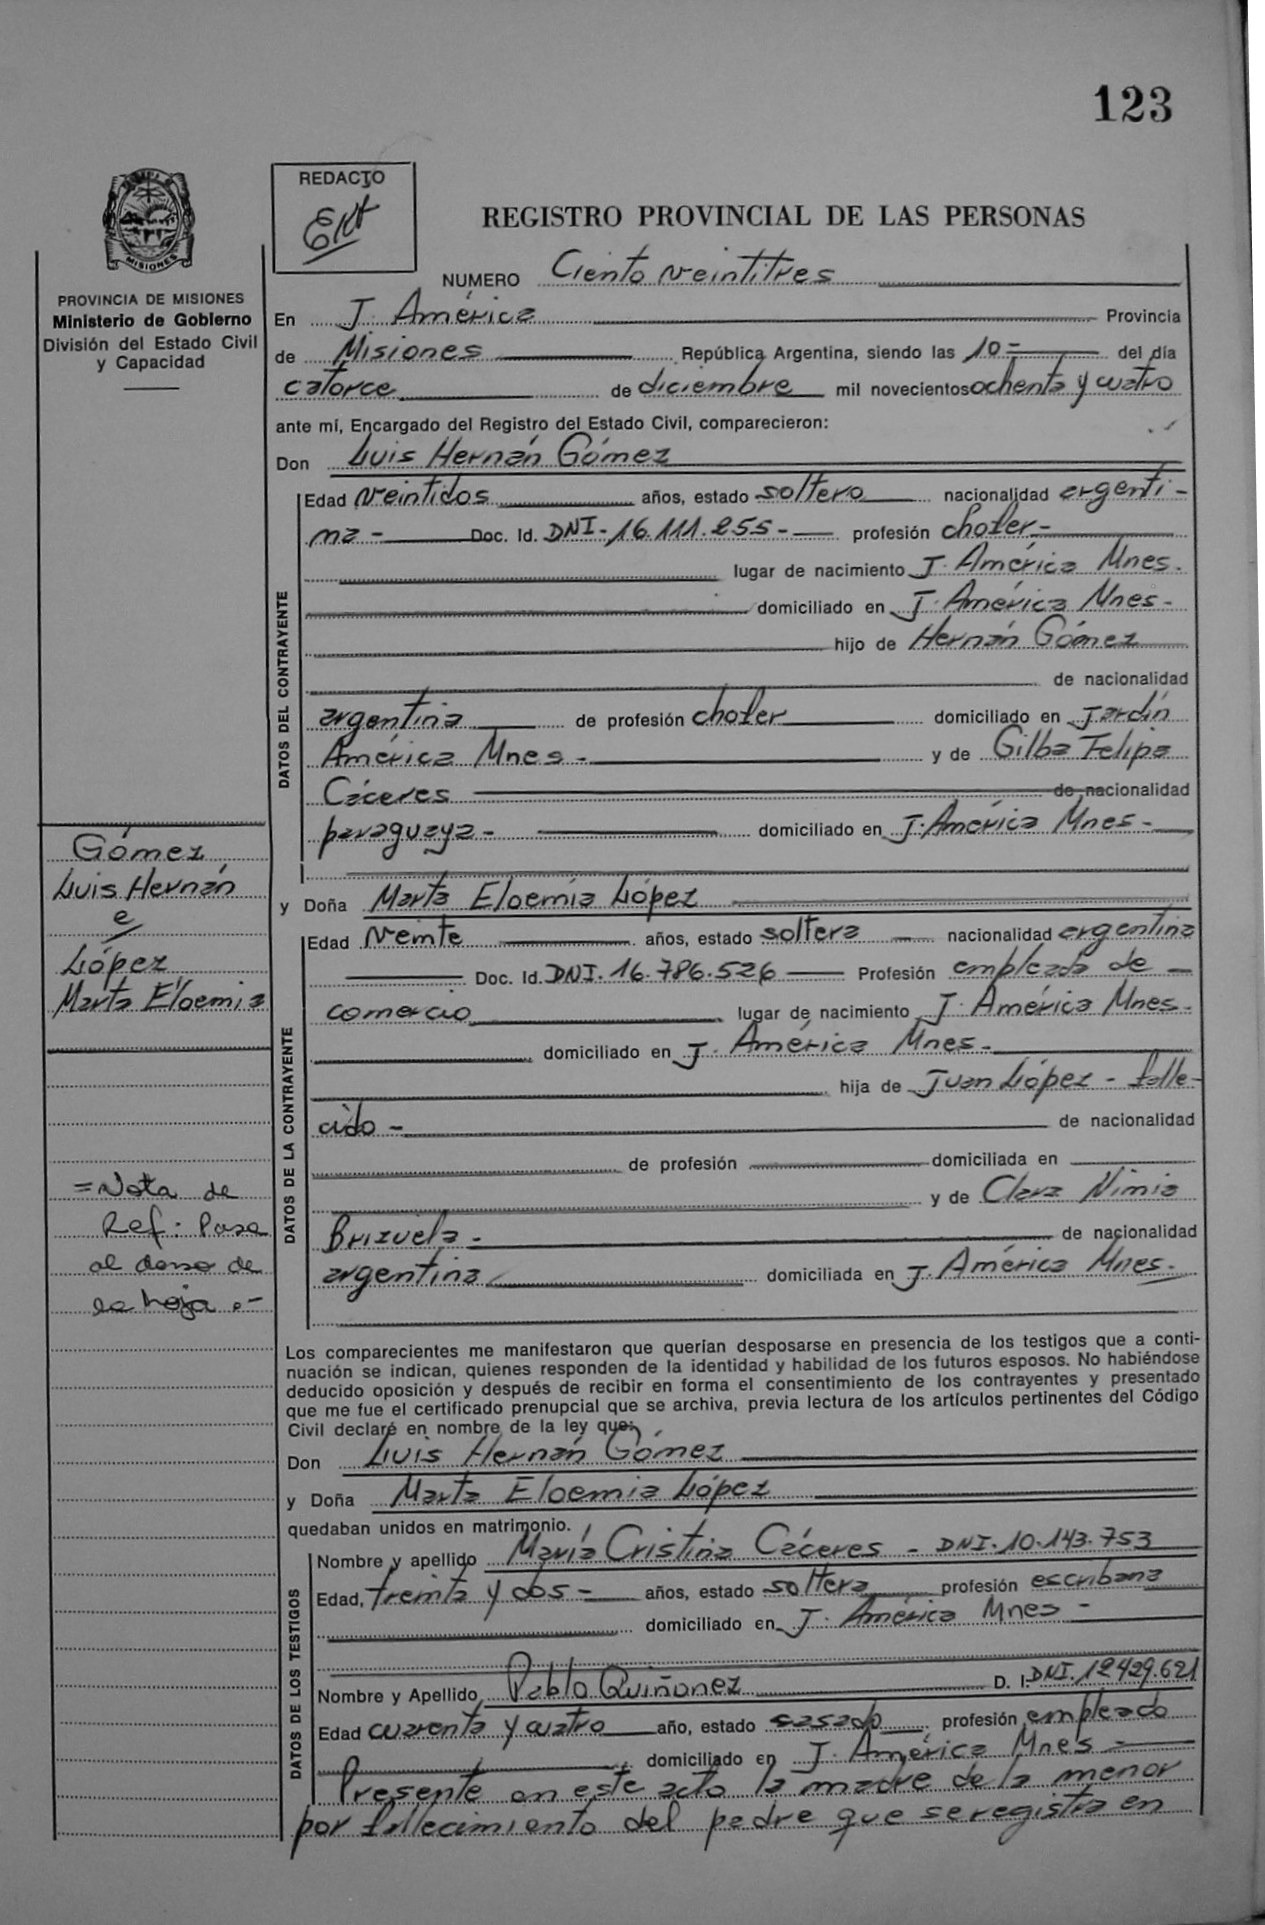 123
REDACTO
REGISTRO PROVINCIAL DE LAS PERSONAS
MISIONES
PROVINCIA DE MISIONES
Ministerio de Gobierno
División del Estado Civil
y Capacidad
NUMERO Ciento veintitres
En J. América Provincia
de Misiones República Argentina, siendo las 10- del día
catorce de diciembre mil novecientos ochenta y cuatro
ante mí, Encargado del Registro del Estado Civil, comparecieron:
Don Luis Hernán Gómez
DATOS DEL CONTRAYENTE
Edad veintidos años, estado soltero nacionalidad argenti-
na- Doc. Id. DNI-16.111.255- profesión chofer-
lugar de nacimiento J. América Mnes.
domiciliado en J. América Mnes-
hijo de Hernán Gómez
de nacionalidad
argentina de profesión chofer domiciliado en Jardín
América Mnes- y de Gilba Felipa
Cáceres de nacionalidad
paraguaya- domiciliado en J. América Mnes-
Gómez
Luis Hernán
e
López
Marta Eloemia
y Doña Marta Eloemía López
DATOS DE LA CONTRAYENTE
Edad Veinte años, estado soltera nacionalidad argentina
Doc. Id. DNI.16.786.526 Profesión empleada de
comercio lugar de nacimiento J. América Mnes-
domiciliado en J. América Mnes-
hija de Juan López - falle-
cido- de nacionalidad
de profesión domiciliada en
y de Clara Nimia
Brizuela- de nacionalidad
argentina domiciliada en J. América Mnes.
=Nota de
Ref: Pasa
al dorso de
la hoja.-
Los comparecientes me manifestaron que querían desposarse en presencia de los testigos que a conti-
nuación se indican, quienes responden de la identidad y habilidad de los futuros esposos. No habiéndose
deducido oposición y después de recibir en forma el consentimiento de los contrayentes y presentado
que me fue el certificado prenupcial que se archiva, previa lectura de los artículos pertinentes del Código
Civil declaré en nombre de la ley que:
Don Luis Hernán Gómez
y Doña Marta Eloemia López
quedaban unidos en matrimonio.
DATOS DE LOS TESTIGOS
Nombre y apellido María Cristina Cáceres - DNI.10.143.753
Edad, treinta y dos- años, estado soltera profesión escribana
domiciliado en J. América Mnes-
Nombre y Apellido Pablo Quiñonez D. I. DNI.12429.621
Edad cuarenta y cuatro año, estado casado profesión empleado
domiciliado en J. América Mnes-
Presente en este acto la madre de la menor
por fallecimiento del padre que se registra en